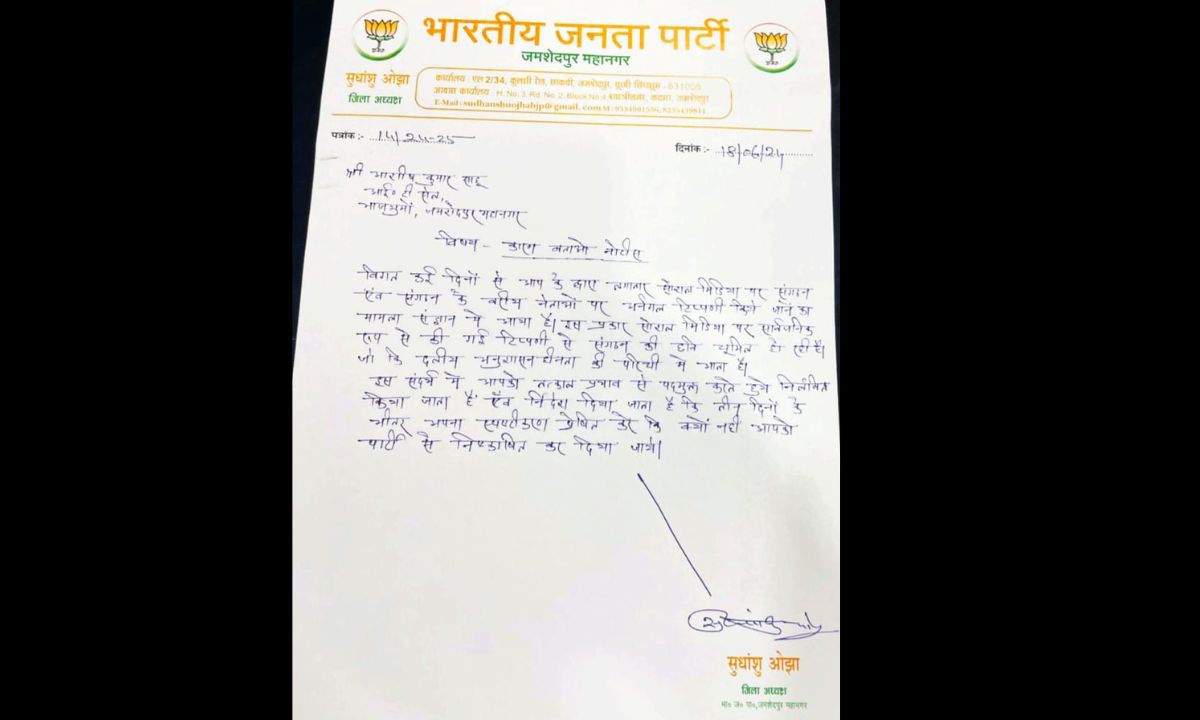 भारतीय जनता पार्टी
जमशेदपुर महानगर
सुधांशु ओझा
जिला अध्यक्ष
कार्यालय : एल 2/34, कुलसी रोड, साकची, जमशेदपुर, पूर्वी सिंहभूम - 831001
आवास कार्यालय : H. No. 3, Rd. No. 2, Block No.4 शास्त्रीनगर, कदमा, जमशेदपुर
E-Mail : sudhanshuojhabjp@gmail.com M.
पत्रांक :- 14/24-25
दिनांक :- 18/06/24
श्री आशीष कुमार साहू
आई० टी सेल,
भाजयुमो, जमशेदपुर महानगर
विषय - कारण बताओ नोटीस
विगत कई दिनों से आप के द्वारा लगातार सोशल मिडिया पर संगठन
एंव संगठन के वरीय नेताओं पर अनर्गल टिप्पणी किये जाने का
मामला संज्ञान में आया है। इस प्रकार सोशल मिडिया पर सार्वजनिक
रूप से की गई टिप्पणी से संगठन की छवि धूमिल हो रही है।
जो कि दलीय अनुशासन हीनता की परिधी में आता है।
इस संदर्भ में आपको तत्काल प्रभाव से पदमुक्त करते हुये निलंबित
किया जाता है एंव निर्देश दिया जाता है कि तीन दिनों के
भीतर अपना स्पष्टीकरण प्रेषित करे कि क्यों नहीं आपको
पार्टी से निष्कासित कर दिया जाये।
सुधांशु ओझा
जिला अध्यक्ष
भा० ज० पा०, जमशेदपुर महानगर